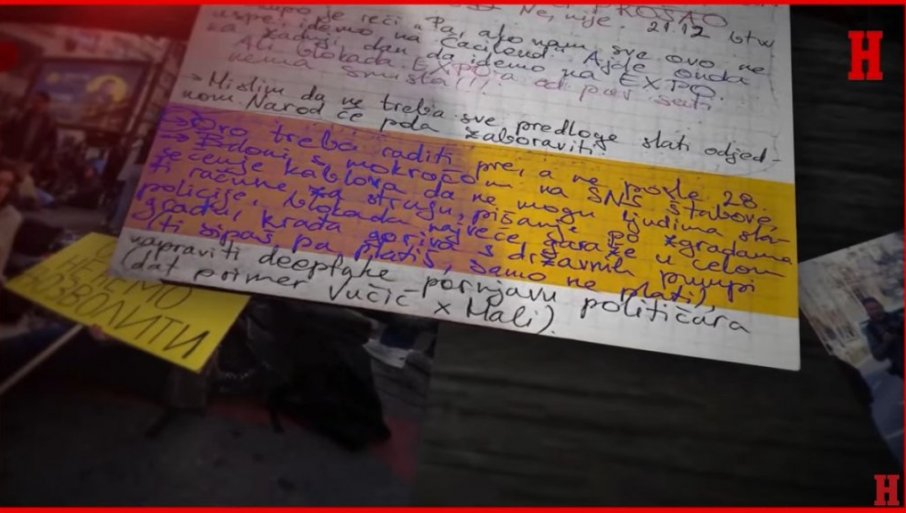 je reći "Pa, ako nam sve ovo ne
uspe, idemo na Ćacilend. Ajde onda
za zadnji dan da idemo na EXPO.
Ali blokada EXPO-a od par sati
nema smisla!!!
21.12 btw
→ Mislim da ne treba sve predloge slati odjed-
nom. Narod će pola zaboraviti.
→ Ovo treba raditi pre, a ne posle 28.
→ s mokraćom na SNS štabove,
sečenje kablova da ne mogu ljudima sla-
ti račune za struju, pišanje po zgradama
policije, blokada najveće garaže u celom
gradu, krađa goriva s državnih pumpi
(ti sipaš pa platiš, samo ne plati),
napraviti deepfake pornjavu političara
(dat primer Vučić x Mali).
НЕЋЕМО
ДОЗВОЛИТИ
H
H